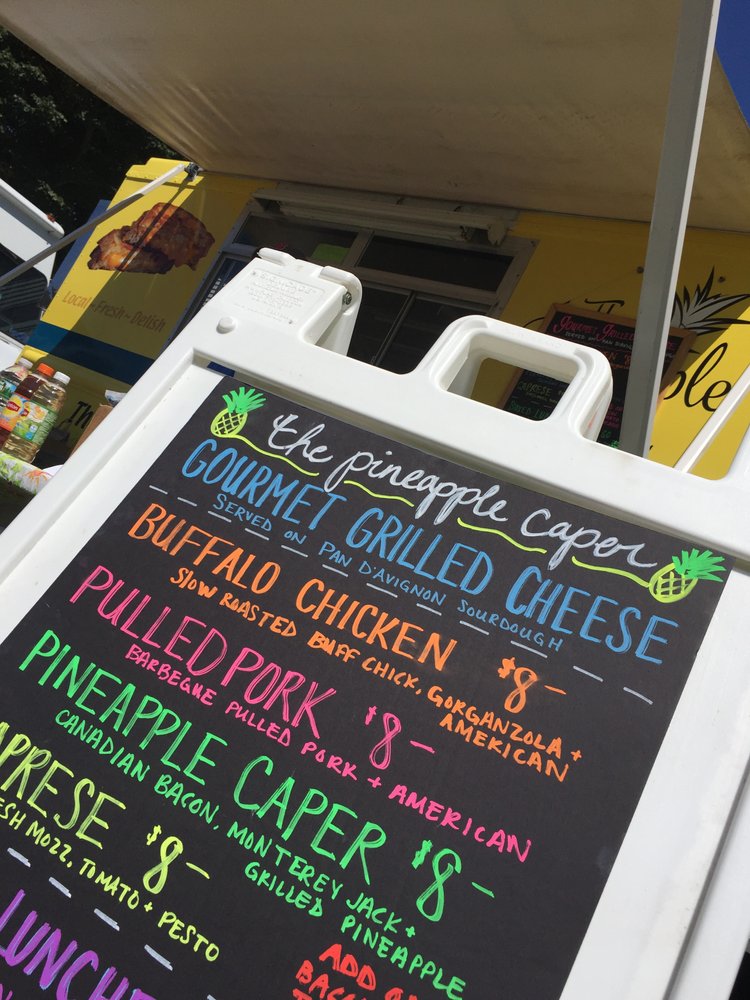 the pineapple caper
GOURMET GRILLED CHEESE
SERVED ON PAN D'AVIGNON SOURDOUGH
BUFFALO CHICKEN $8-
SLOW ROASTED BUFF CHICK, GORGANZOLA +
AMERICAN
PULLED PORK $8-
BARBEQUE PULLED PORK + AMERICAN
PINEAPPLE CAPER $8-
CANADIAN BACON, MONTEREY JACK +
GRILLED PINEAPPLE
APRESE $8-
ESH MOZZ, TOMATO + PESTO
LUNCH
ADD
BACO
Local - Fresh - Delish
The
GOURMET GRILLED
SERVED ON PAN